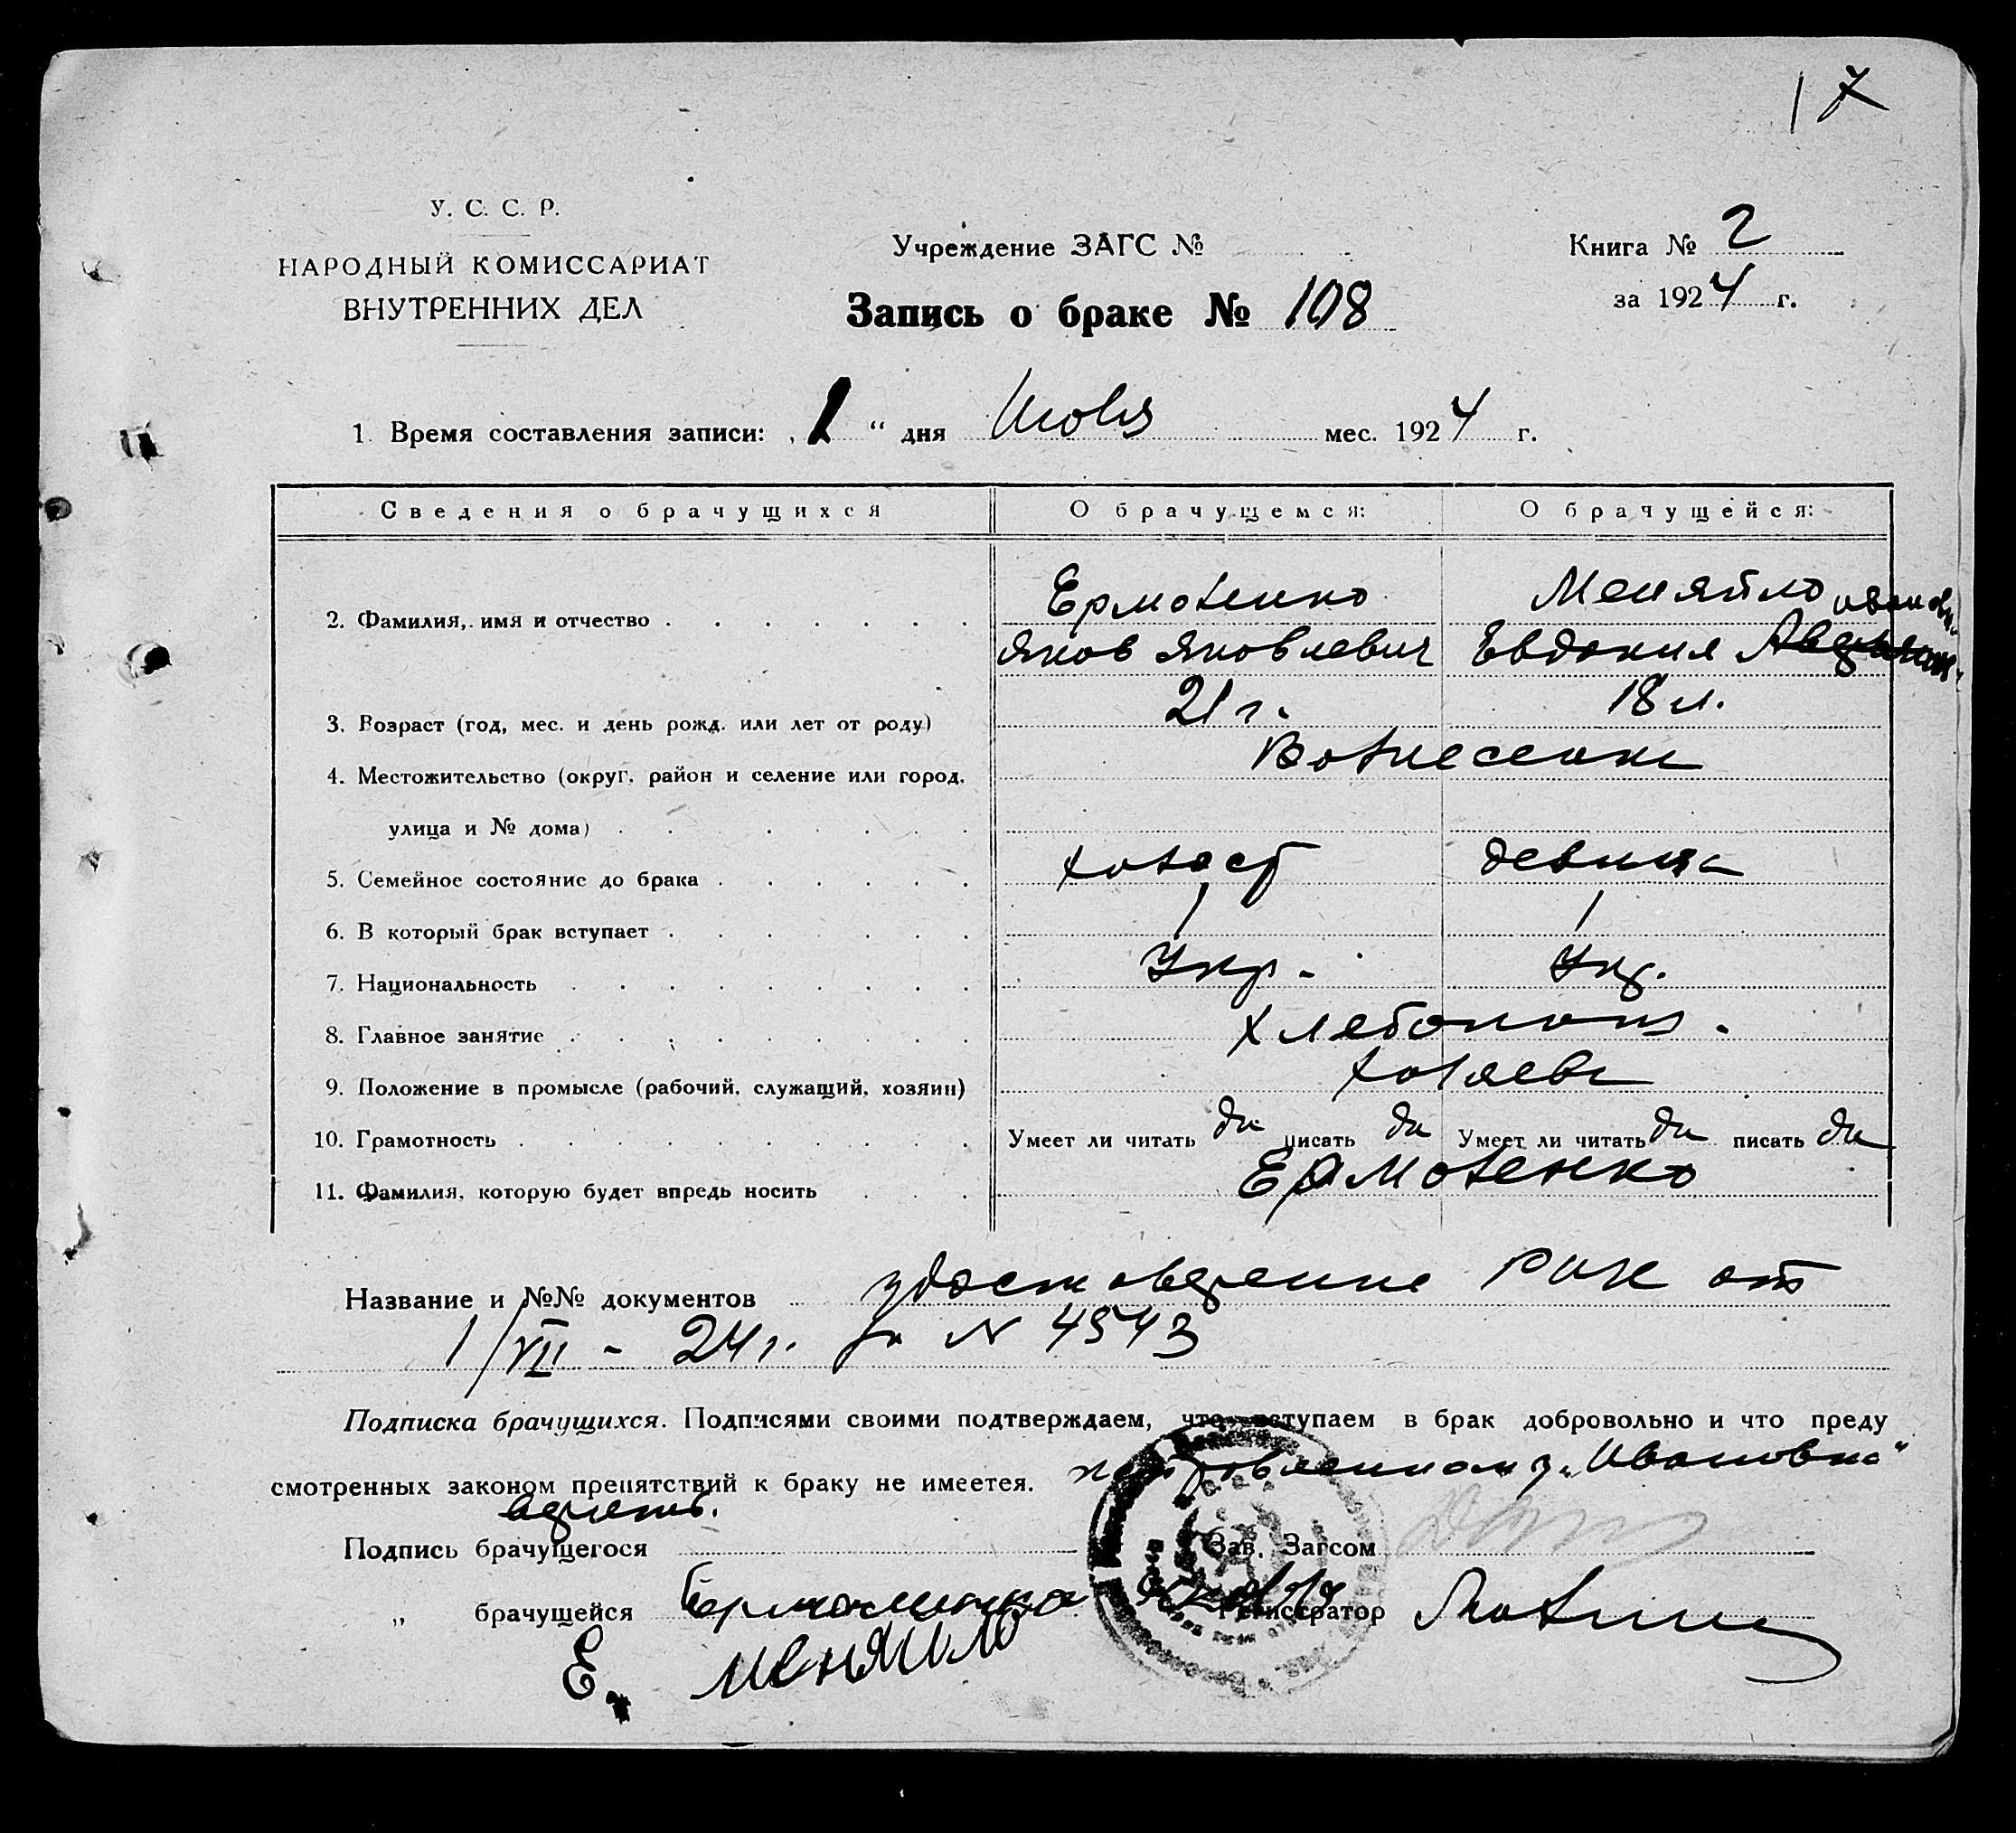 17
У. С. С. Р.
НАРОДНЫЙ КОМИССАРИАТ
ВНУТРЕННИХ ДЕЛ
Учреждение ЗАГС №
Запись о браке № 108
Книга № 2
за 1924 г.
1. Время составления записи: „1“ дня Июля мес. 1924 г.
Сведения о брачущихся О брачущемся: О брачущейся:
Ермоленко Меняйло Ивановн.
2. Фамилия, имя и отчество . . . . . . .
Яков Яковлевич Евдокия
3. Возраст (год, мес. и день рожд. или лет от роду) 21 г. 18 л.
4. Местожительство (округ, район и селение или город, Вознесенск
улица и № дома) . . . . . . .
5. Семейное состояние до брака . . . . . . холост девица
6. В который брак вступает . . . . . . . 1 1
7. Национальность . . . . . . . . Укр. Укр.
8. Главное занятие . . . . . . . . хлебопаш.
9. Положение в промысле (рабочий, служащий, хозяин) хозяева
10. Грамотность . . . . . . . . . Умеет ли читать да писать да Умеет ли читать да писать да
11. Фамилия, которую будет впредь носить . . . Ермоленко
Название и №№ документов удостоверение РИК от
1/VII - 24 г. за N 4543
Подписка брачущихся. Подписями своими подтверждаем, что вступаем в брак добровольно и что преду
смотренных законом препятствий к браку не имеетея. исправленному „Ивановна“
верить.
Подпись брачущегося Зав. Загсом
„ брачущейся Ермоленко Регистратор
Е. Меняйло